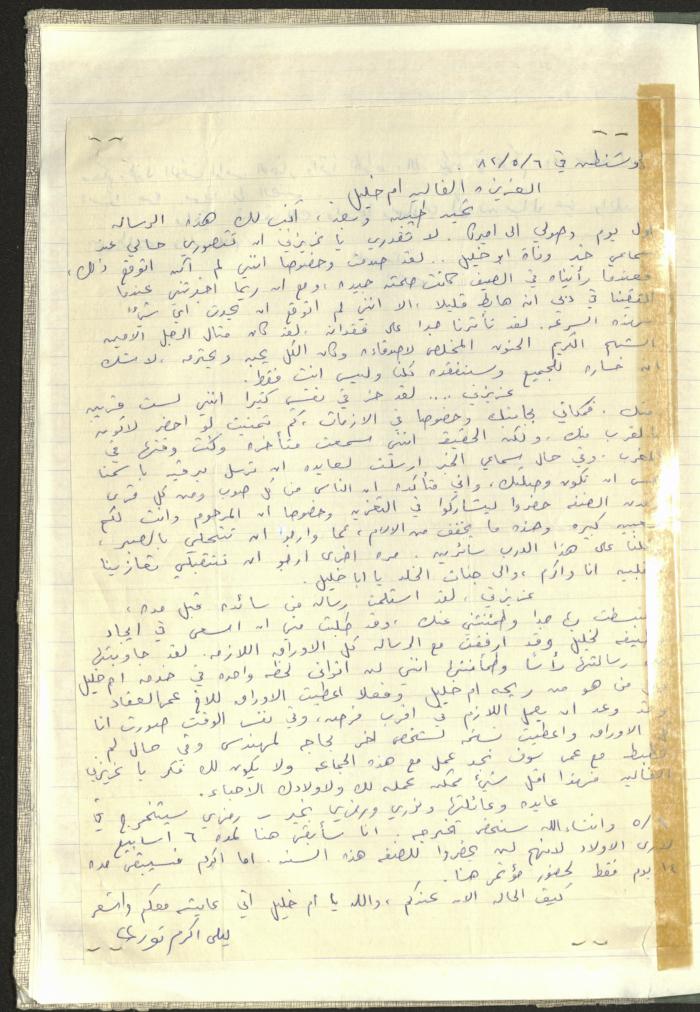 واشنطن في ٨٢/٥/٦
العزيزه الغاليه ام خليل
تحيه طيبه وبعد، اكتب لك هذه الرساله
اول يوم وصولي الى اميركا. لا تقدري يا عزيزتي ان تتصوري حالي عند
سماعي خبر وفاة ابو خليل .. لقد صدمت وخصوصا انني لم اكن اتوقع ذلك،
فعندما رأيناه في الصيف كانت صحته جيده، ومع ان ريما اخبرتني عندما
التقينا في دبي انه هابط قليلا، الا انني لم اتوقع ان يحدث اي شيء
بهذه السرعه. لقد تأثرنا جدا على فقدانه، لقد كان مثال الرجل الامين
الشهم الكريم الحنون المخلص لاصدقاءه وكان الكل يحبه ويحترمه، لا شك
انه خساره للجميع وسنفقده كلنا وليس انت فقط.
عزيزتي .... لقد حز في نفسي كثيرا انني لست قريبه
منك. فمكاني بجانبك وخصوصا في الازمات، كم تمنيت لو احضر لاكون
بالقرب منك، ولكن الحقيقه انني سمعت متأخره وكنت وقتها في
المغرب. وفي حال سماعي الخبر ارسلت لعايده ان ترسل برقيه باسمنا
عسى ان تكون وصلتك، واني متأكده ان الناس من كل صوب ومن كل قرى
ومدن الضفه حضروا ليشاركوا في التعزيه وخصوصا ان المرحوم وانت لكم
محبه كبيره وهذه ما يخفف من الالام، كما وارجو ان تتحلي بالصبر،
كلنا على هذا الدرب سائرين. مره اخرى ارجو ان تتقبلي تعازينا
القلبيه انا واكرم، والى جنات الخلد يا ابا خليل.
عزيزتي، لقد استلمت رساله من سائده قبل مده،
انبسطت بها جدا وطمنتني عنك، وقد طلبت مني ان اسعى في ايجاد
وظيفه لخليل وقد ارفقت مع الرساله كل الاوراق اللازمه. لقد جاوبتها
على رسالتها رأسا وطمأنتها انني لن اتوانى لحظه واحده في خدمه ام خليل
او من هو من ريحه ام خليل وفعلا اعطيت الاوراق للاخ عمر العقاد
وقد وعد ان يعمل اللازم في اقرب فرصه، وفي نفس الوقت صورت انا
الاوراق واعطيت نسخه لشخص اخر بحاجه لمهندس وفي حال لم
تضبط مع عمر سوف نجد عمل مع هذه الجماعه ولا يكون لك فكر يا عزيزتي
الغاليه فهذا اقل شيء ممكن عمله لك ولاولادك الاحباء.
عايده وعائلتها وفوزي ورمزي بخير - رمزي سيتخرج في
/٥ وانشاءالله سنحضر تخرجه. انا سأبقى هنا لمده ٦ اسابيع
لارى الاولاد لانهم لن يحضروا للضفه هذه السنه. اما اكرم فسيبقى مده
١٠ يوم فقط لحضور مؤتمر هنا.
كيف الحاله الان عندكم، والله يا ام خليل اني عايشه معكم واشعر
ليلى اكرم